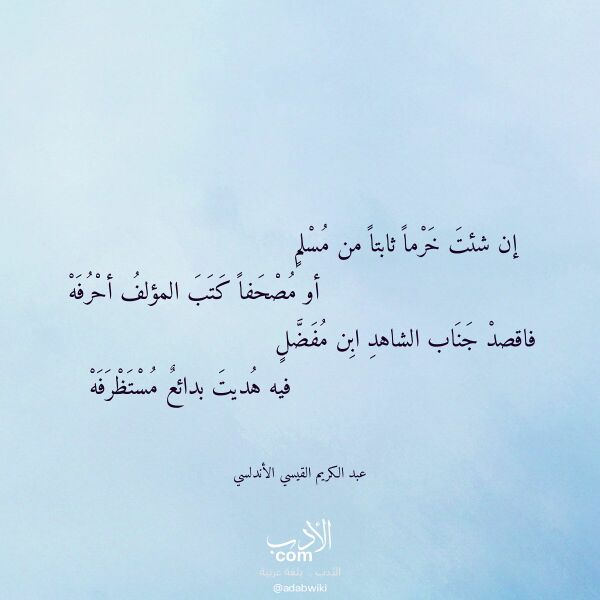 إن شئتَ خَرْماً ثابتاً من مُسْلمٍ
أو مُصْحَفاً كَتَبَ المؤلفُ أحْرُفَهْ
فاقصدْ جَنَاب الشاهدِ ابِن مُفَضَّلٍ
فيه هُديتَ بدائعٌ مُسْتَظْرَفَهْ
عبد الكريم القيسي الأندلسي
الأدب
com
الأدب .. بلغة عربية
@adabwiki